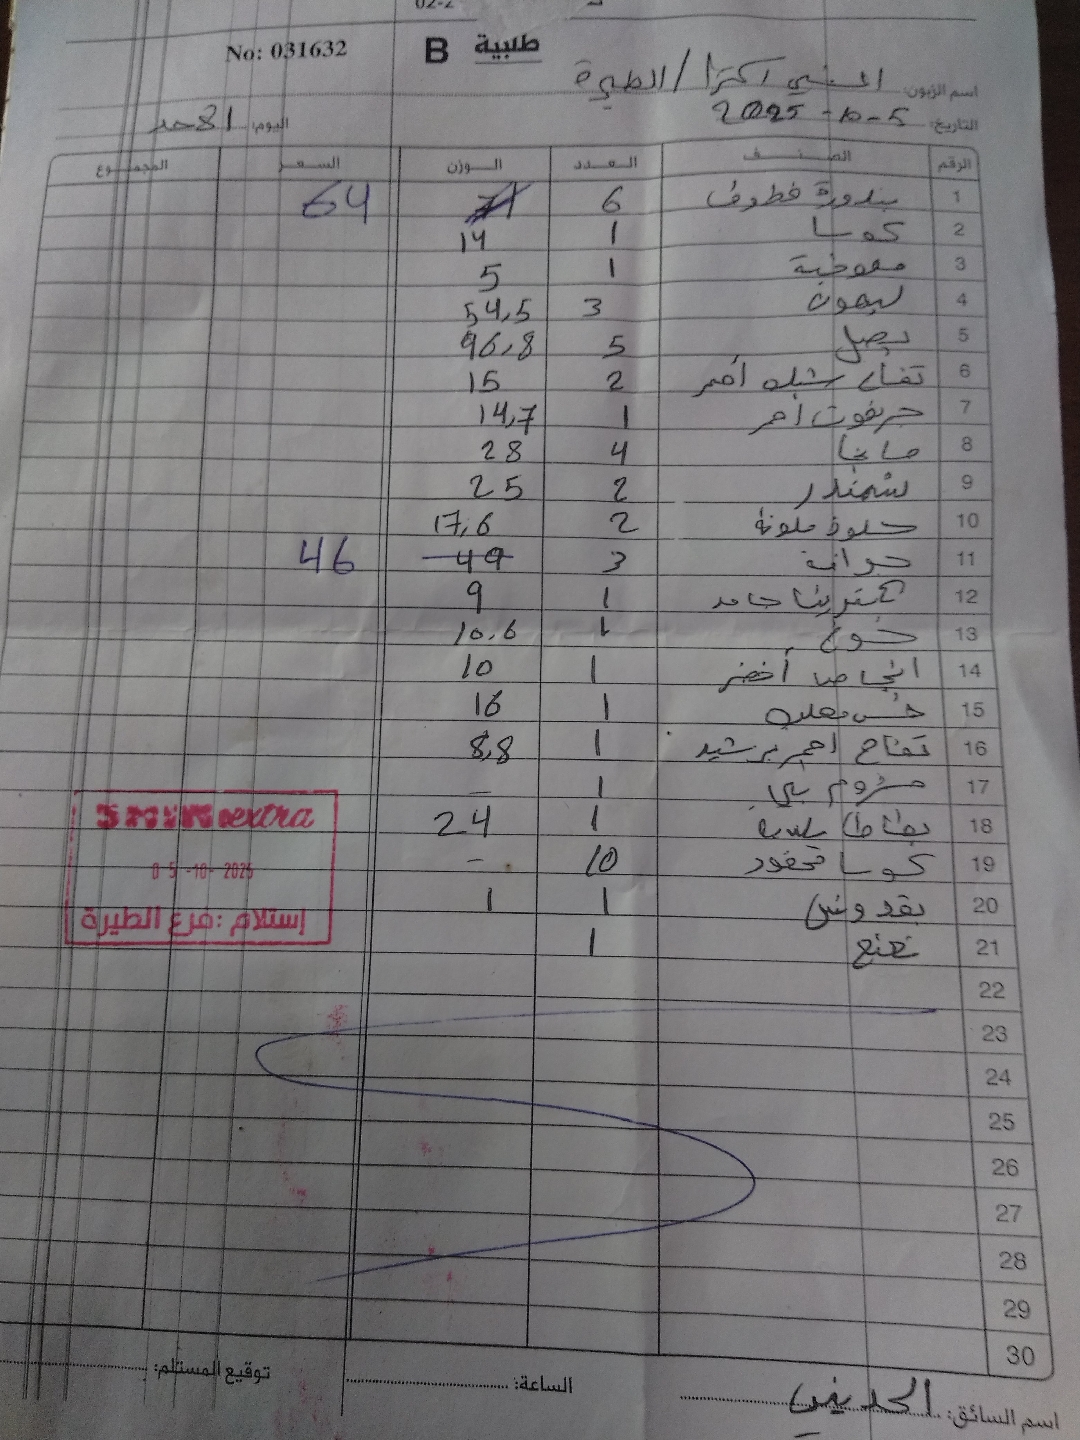 No: 031632 B طلبية
اسم الزبون: اكترا / الطيرة
التاريخ: 5-10-2025 اليوم: الاحد
الرقم الصنف العدد الوزن السعر المجموع
1 بندورة قطوف 6 71 64
2 كوسا 1 14
3 ملوخية 1 5
4 ليمون 3 54,5
5 بصل 5 96,8
6 تفاح أصفر 2 15
7 جريفوت احمر 1 14,7
8 مانجا 4 28
9 شمندر 2 25
10 حلوة ملونة 2 17,6
11 3 49 46
12 نكترينا حامد 1 9
13 خوخ 1 10,6
14 انجاص أخضر 1 10
15 خس 1 16
16 تفاح احمر 1 8,8
17 1 -
18 بطاطا 1 24
19 كوسا محفور 10 -
20 بقدونس 1 1
21 نعنع 1
22
23
24
25
26
27
28
29
30
extra
05-10-2025
إستلام : فرع الطيرة
اسم السائق: الساعة: توقيع المستلم: